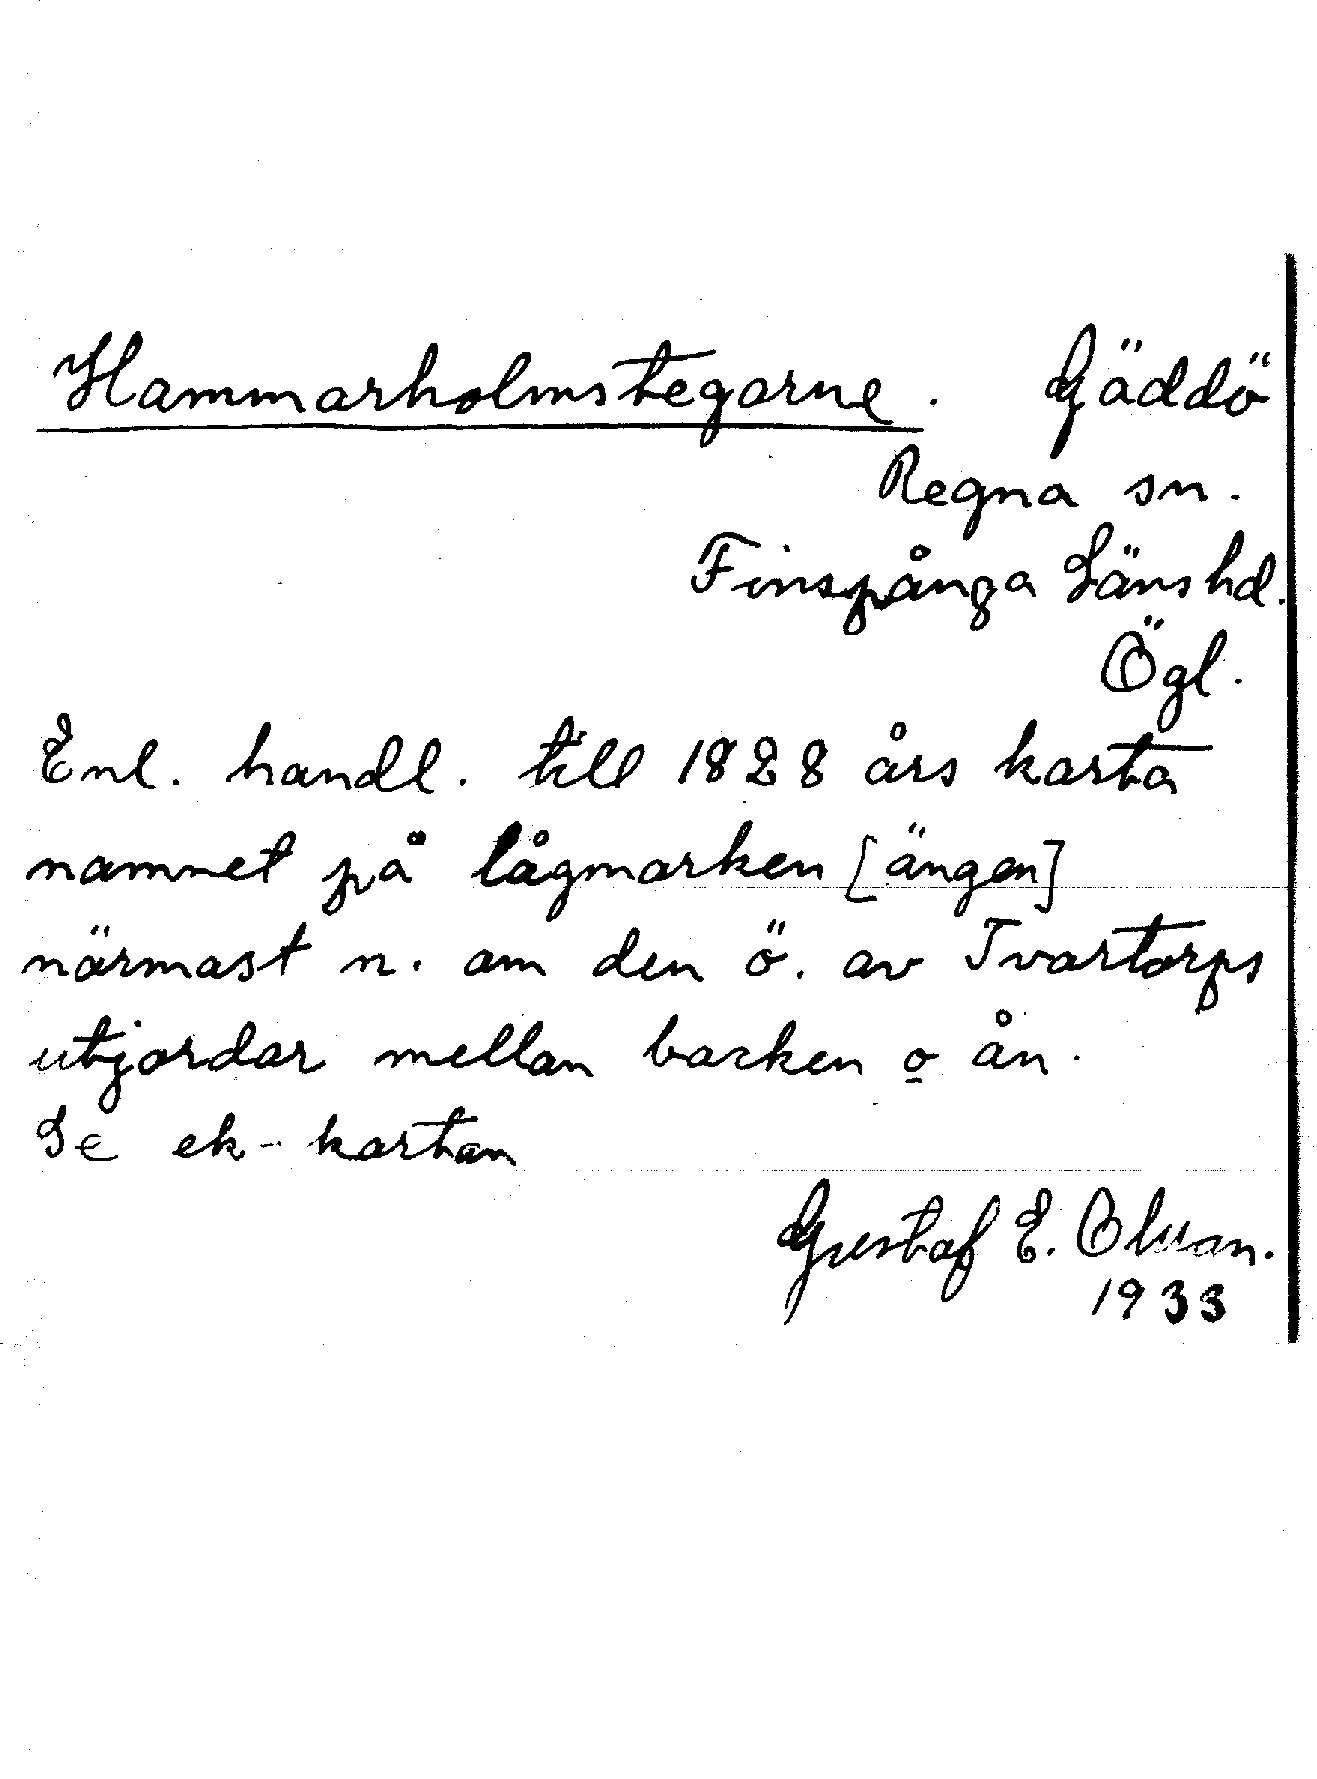 Hammarholmstegarne. Gäddö
Regna sn.
Finspånga Länshd.
Ögl.
Enl. handl. till 1828 års karta
namnet på lågmarken [ängen]
närmast n. om den ö. av Tvartorps
utjordar mellan backen o ån.
Se ek-kartan
Gustaf E. Olsson.
1933